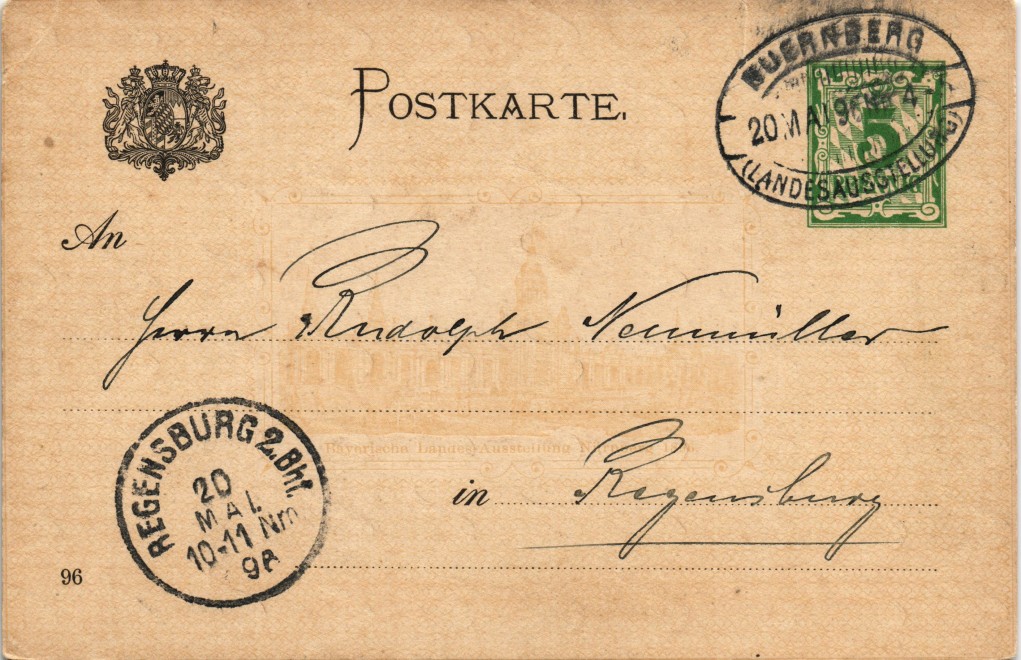 POSTKARTE.
NUERNBERG
20 MAI 96 Nm 4-
(LANDESAUSSTELLUNG)
5
An
Herrn Rudolph Neumüller
Bayerische Landes-Ausstellung
in Regensburg
REGENSBURG 2.Bhf.
20
MAI.
10-11 Nm
96
96